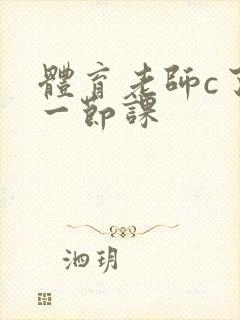 體育老師c了
一節課
泗玥